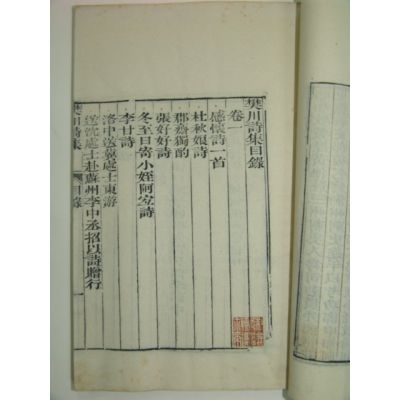 樊川詩集目錄
卷一
感懷詩一首
杜秋娘詩
郡齋獨酌
張好好詩
冬至日寄小姪阿宜詩
李甘詩
洛中送冀處士東游
送沈處士赴蘇州李中丞招以詩贈行
樊川詩集 目錄 一